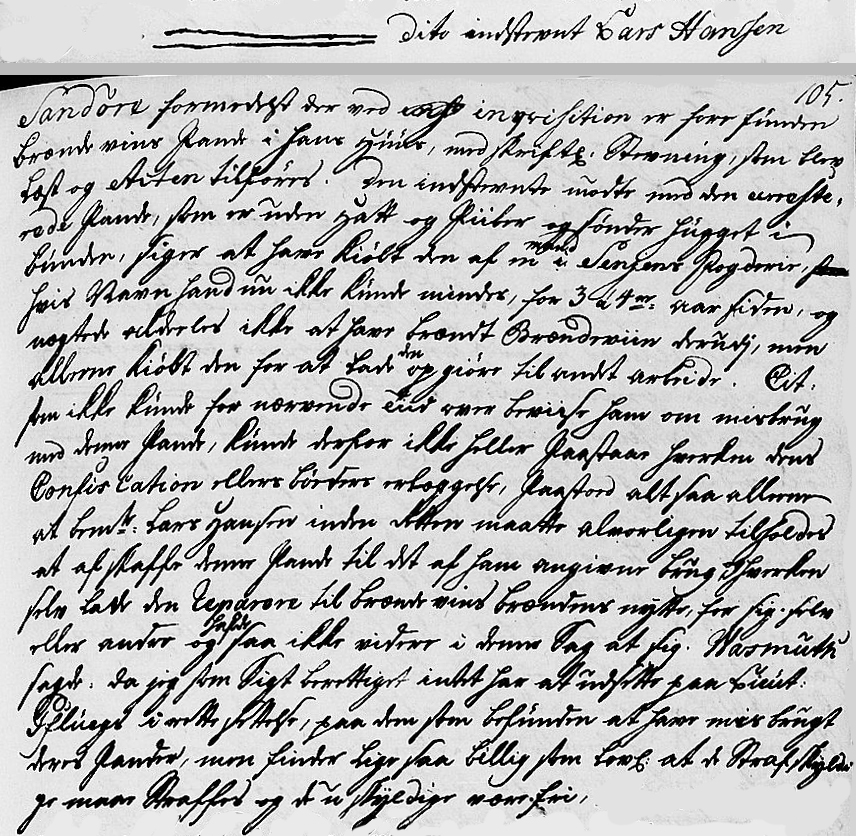 Dito indstevnt Lars Hansen
105.
Sandöre formedelst der ved inqvisition er fore funden
brænde viins Pande i hans Huus, med skriftl: Stevning, som blev
læst og Acten tilföres. Den indstevnte mödte med den arreste-
rede Pande, som er uden Hatt og Piiber og sönder hugget i
bunden, siger at have kiöbt den af en mand i Senjens Fogderie,
hvis Navn hand nu ikke kunde mindes, for 3 a 4re: aar siden, og
nægtede aldeles ikke at have brændt Brændeviin derudj, men
allene kiöbt den for at lade den op giöre til andt arbeide. Cit:
som ikke kunde for nærværende Tiid over beviise ham om misbrug
med denne Pande, kunde derfor ikke heller Paastaae hverken dens
Confiscation ellers böeders erlæggelse, Paastod altsaa allene
at bemte: Lars Hansen inden Retten maatte alvorligen tilholdes
at af skaffe denne Pande til det af ham angivne brug, hverken
selv lade den reparere til brænde viins brændens nytte, for sig selv
eller andre og havde saa ikke videre i denne Sag at sige. Wasmuth
sagde: da jeg som Sigt berettiget intet har at udsette paa Lieut:
Pfluegs i rette settelse, paa dem som befunden at have mis brugt
deres Pander, men finder lige saa billig som lovl: at de Strafskyldi-
ge maae Straffes og de u skyldige være fri,